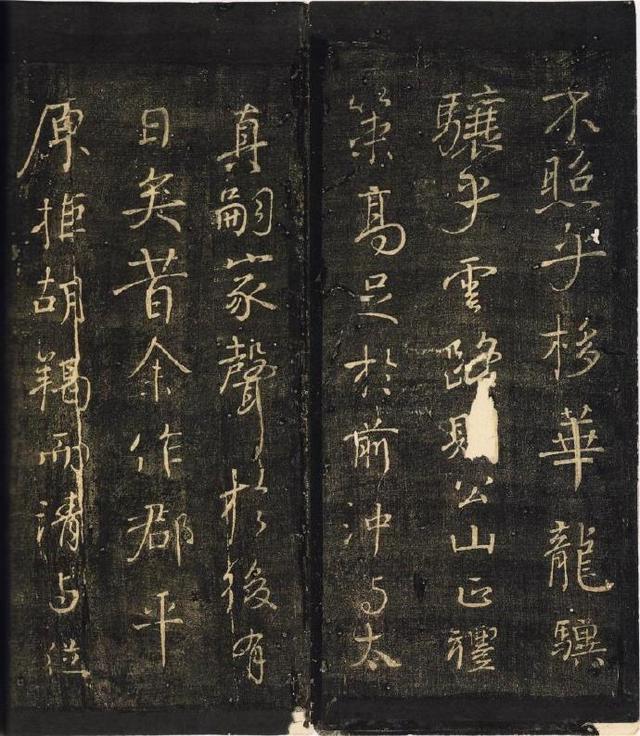 不照乎栘華龍驥
驤乎雲路則公山正禮
策高足於前沖与太
真嗣家聲於後有
日矣昔余作郡平
原拒胡羯而請与從